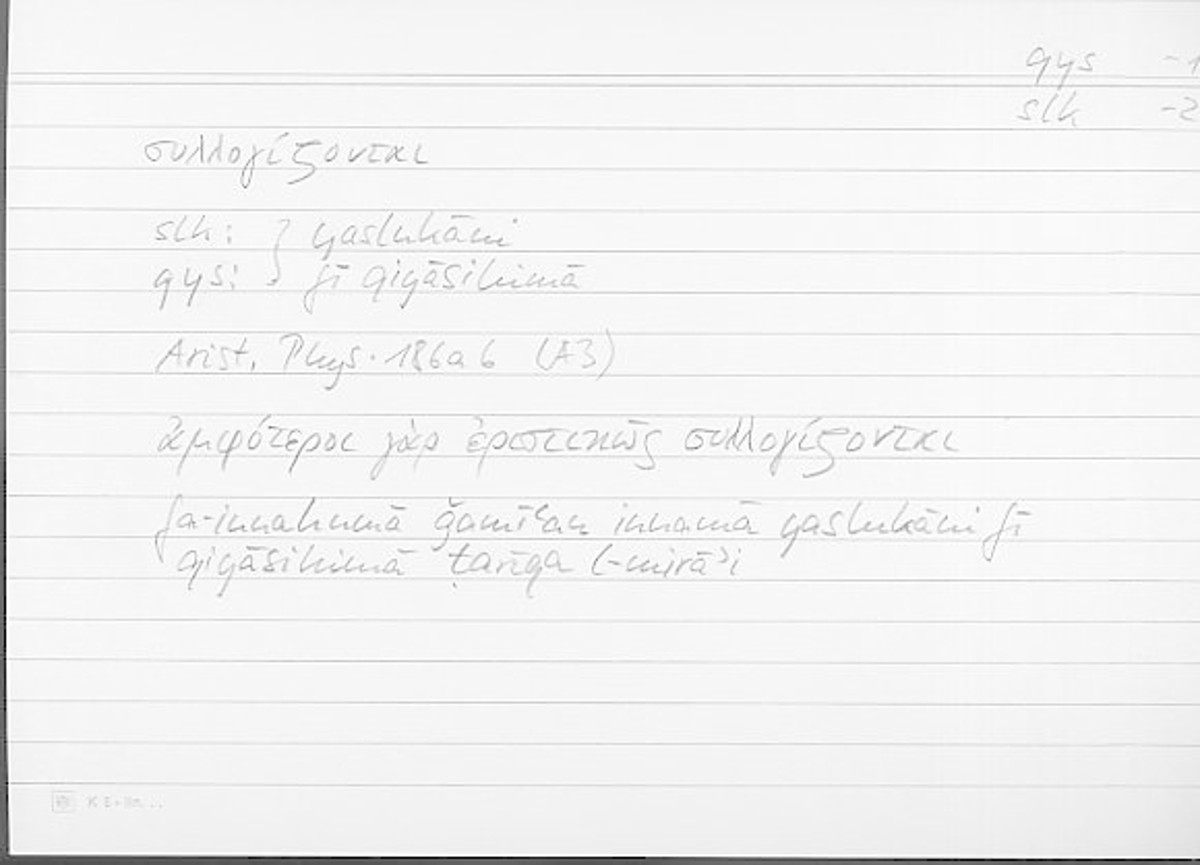 qys -1
slk -2
συλλογίζονται
slk: } yaslukāni
qys: fī qiyāsihimā
Arist. Phys. 186a6 (A3)
ἀμφότεροι γὰρ ἐριστικῶς συλλογίζονται
fa-innahumā ǧamīʿan innamā yaslukāni fī
qiyāsihimā ṭarīqa l-mirāʾi